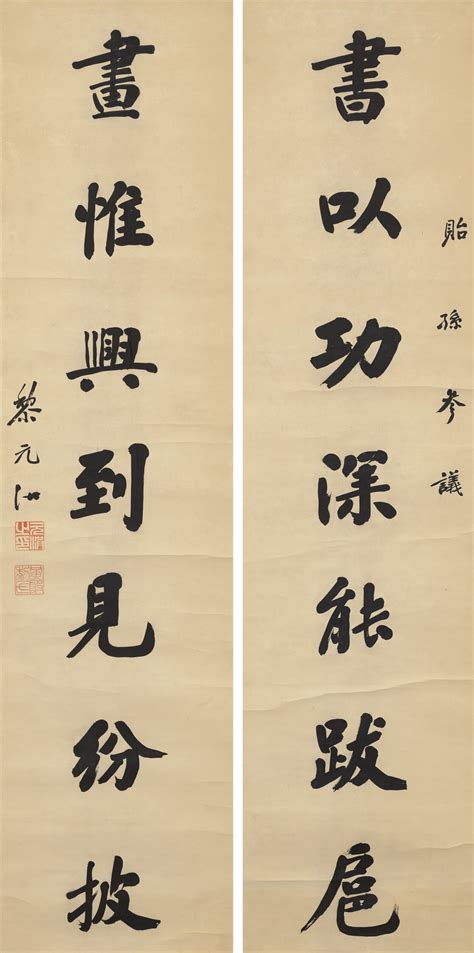 貽孫參議
書以功深能跋扈
畫惟興到見紛披
黎元洪